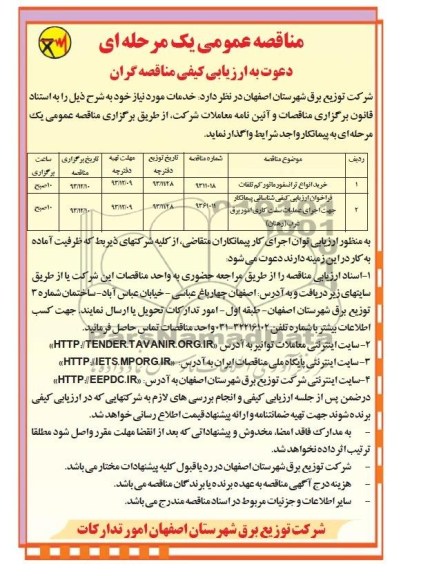 مناقصه عمومی یک مرحله ای
دعوت به ارزیابی کیفی مناقصه گران
شرکت توزیع برق شهرستان اصفهان در نظر دارد: خدمات مورد نیاز خود به شرح ذیل را به استناد
قانون برگزاری مناقصات و آئین نامه معاملات شرکت، از طریق برگزاری مناقصه عمومی یک
مرحله ای به پیمانکار واجد شرایط واگذار نماید.
ردیف موضوع مناقصه شماره مناقصه تاریخ توزیع دفترچه مهلت تهیه دفترچه تاریخ برگزاری مناقصه ساعت برگزاری
۱ خرید انواع ترانسفورماتور کم تلفات ۹۳۱۱۰۱۸ ۹۳/۱۱/۲۸ ۹۳/۱۲/۰۹ ۹۳/۱۲/۱۰ ۱۰صبح
۲ فراخوان ارزیابی کیفی شناسائی پیمانکار جهت اجرای عملیات ۹۳/۱۱/۲۸ ۹۳/۱۲/۰۹ ۹۳/۱۲/۱۰ ۱۰صبح
به منظور ارزیابی توان اجرای کار پیمانکاران متقاضی، از کلیه شرکتهای ذیربط که ظرفیت آماده
به کار در این زمینه دارند دعوت می شود:
۱-اسناد ارزیابی مناقصه را از طریق مراجعه حضوری به واحد مناقصات این شرکت یا از طریق
سایتهای زیر دریافت و به آدرس: اصفهان چهارباغ عباسی - خیابان عباس آباد- ساختمان شماره ۳
توزیع برق شهرستان اصفهان- طبقه اول - امور تدارکات تحویل یا ارسال نمایند. جهت کسب
اطلاعات بیشتر با شماره تلفن ۳۲۲۱۶۱۰۲-۰۳۱ واحد مناقصات تماس حاصل فرمائید.
۲-سایت اینترنتی معاملات توانیر به آدرس: «HTTP://TENDER.TAVANIR.ORG.IR»
۳-سایت اینترنتی پایگاه ملی مناقصات ایران به آدرس: «HTTP://IETS.MPORG.IR»
۴-سایت اینترنتی شرکت توزیع برق شهرستان اصفهان به آدرس: «HTTP://EEPDC.IR»
در ضمن پس از جلسه ارزیابی کیفی و انجام بررسی های لازم به شرکتهایی که در ارزیابی کیفی
برنده شوند جهت تهیه ضمانتنامه و ارائه پیشنهاد قیمت اطلاع رسانی خواهد شد.
- به مدارک فاقد امضا، مخدوش و پیشنهاداتی که بعد از انقضا مهلت مقرر واصل شود مطلقا
ترتیب اثر داده نخواهد شد.
- شرکت توزیع برق شهرستان اصفهان در رد یا قبول کلیه پیشنهادات مختار می باشد.
- هزینه درج آگهی مناقصه به عهده برنده یا برندگان مناقصه می باشد.
- سایر اطلاعات و جزئیات مربوط در اسناد مناقصه مندرج می باشد.
شرکت توزیع برق شهرستان اصفهان امور تدارکات